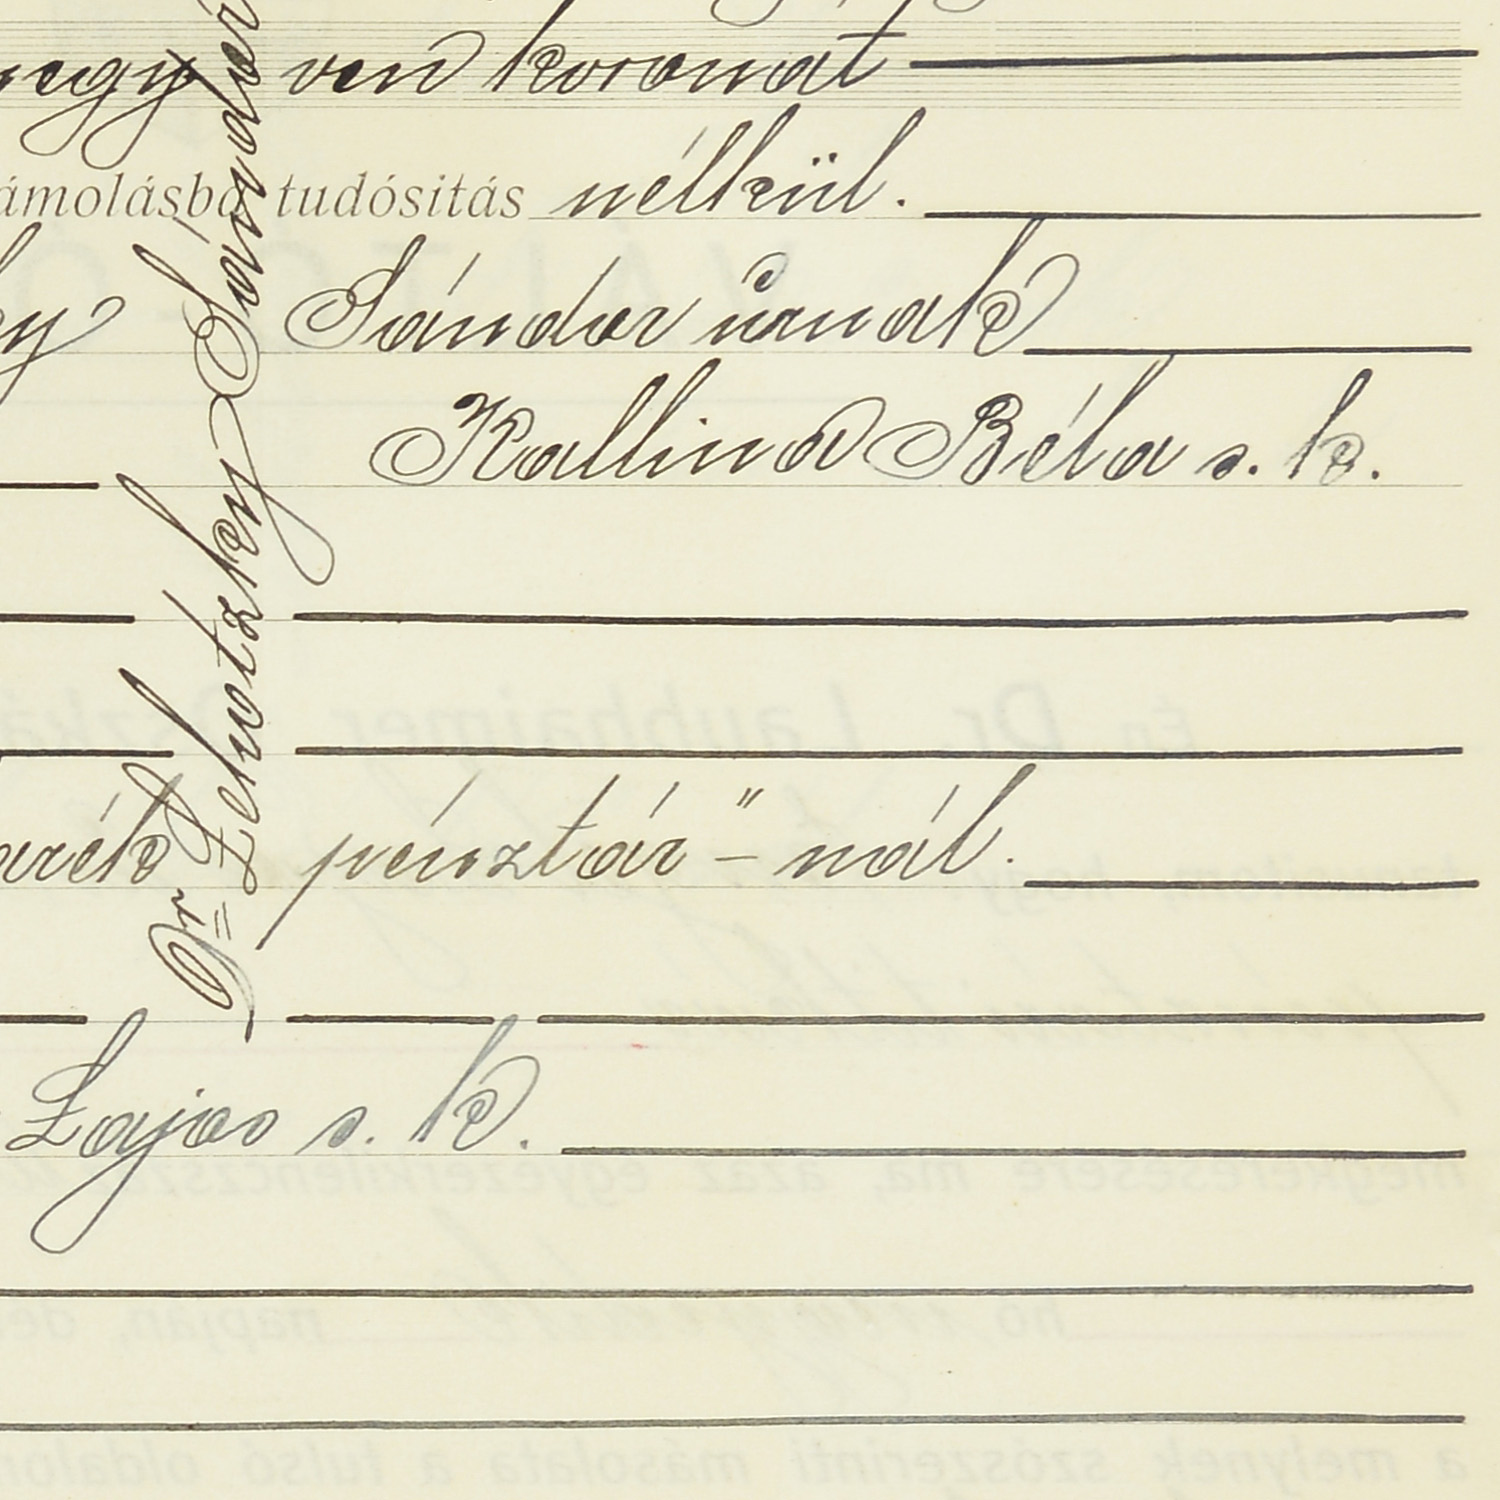 negyven koronát
ámolásba tudósitás nélkül.
Sándor úrnak
Kallina Béla s. k.
pénztár" - nál.
Lajos s. k.
Dr Lehotzky Sándor